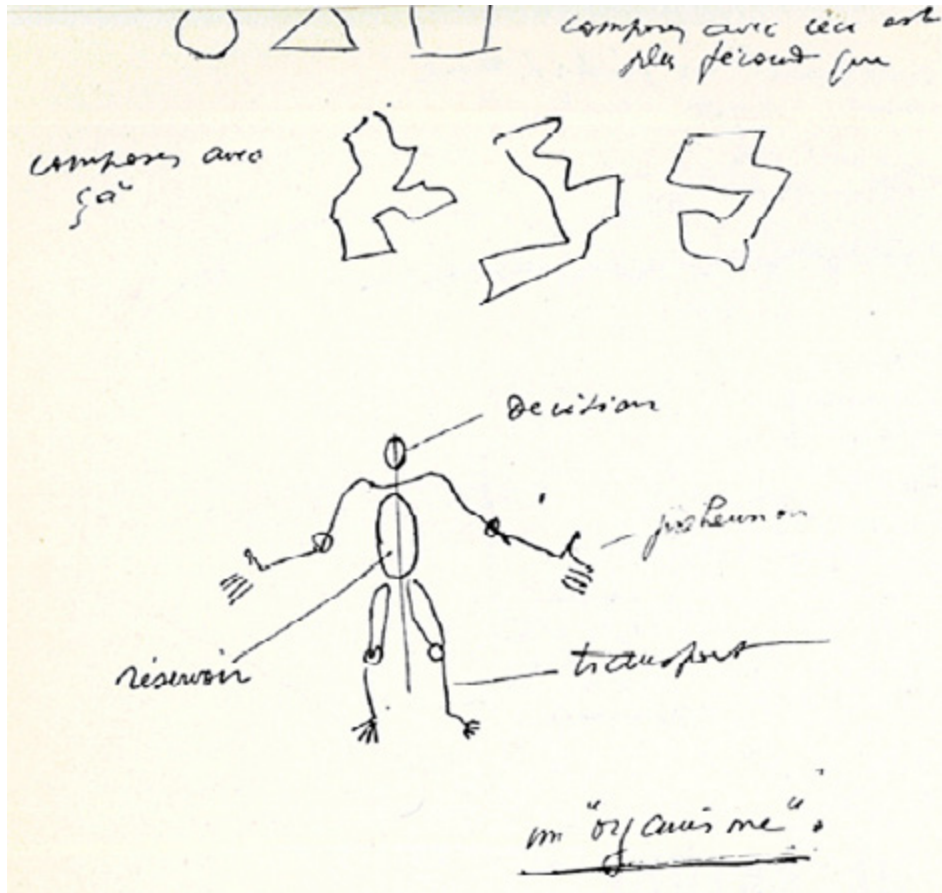 composer avec ceci est
plus fécond que
composer avec
ça
décision
préhension
réservoir
transport
un "organisme".